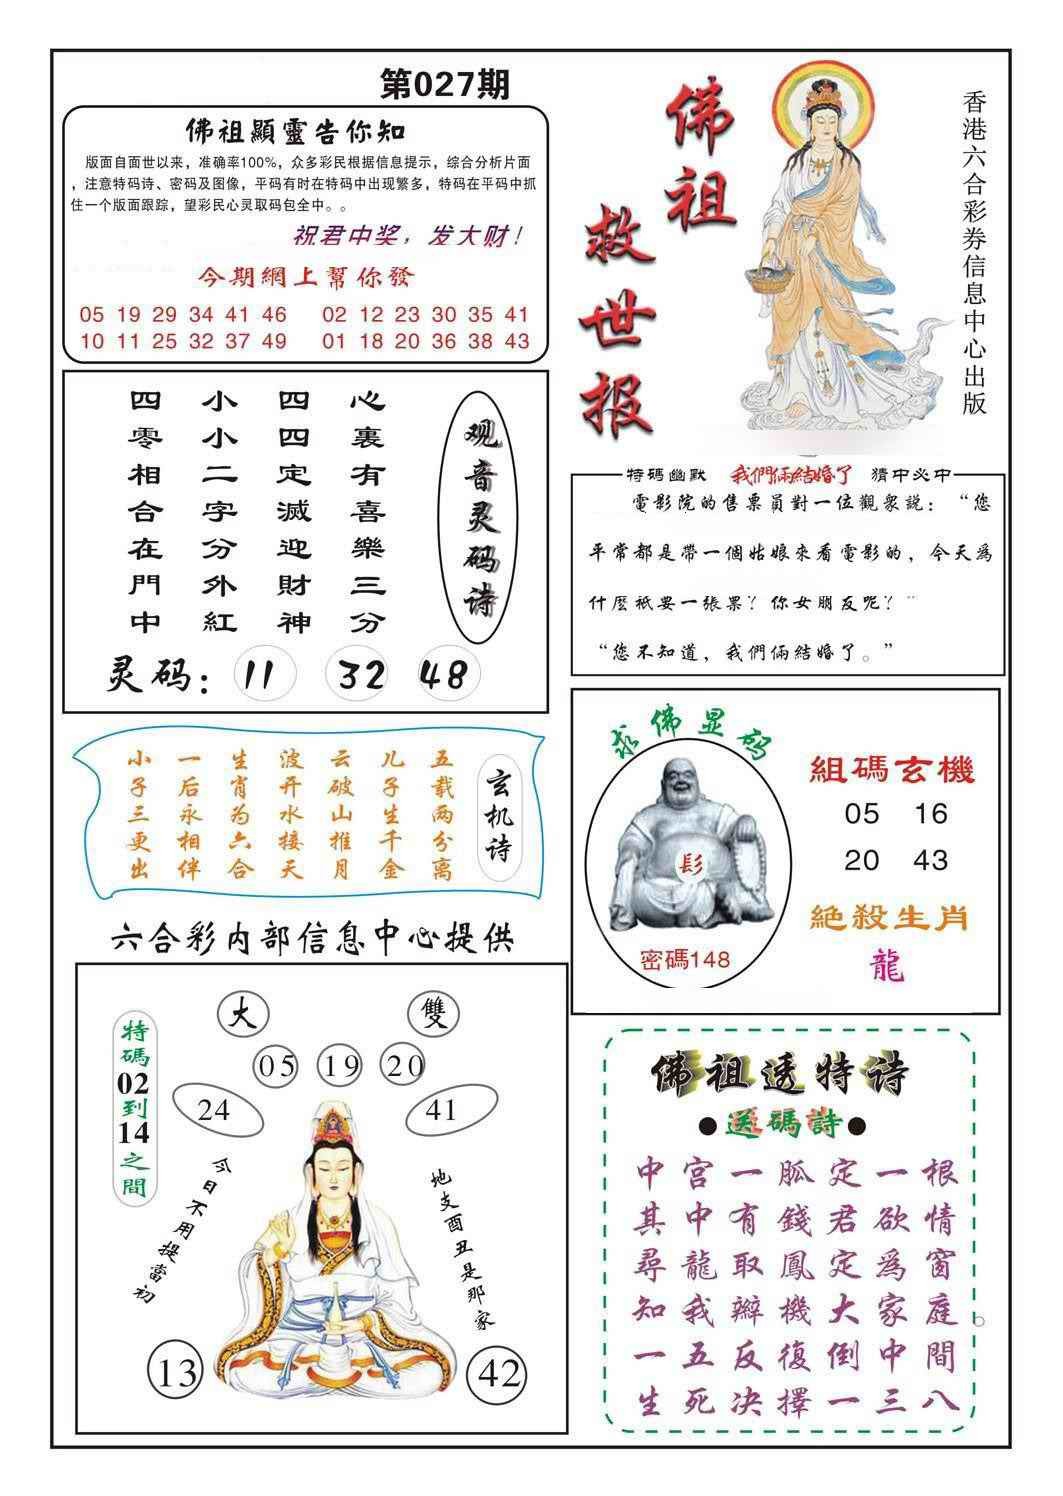 第027期
佛祖顯靈告你知
版面自面世以来，准确率100%，众多彩民根据信息提示，综合分析片面
，注意特码诗、密码及图像，平码有时在特码中出现繁多，特码在平码中抓
住一个版面跟踪，望彩民心灵取码包全中。。
祝君中奖，发大财！
今期網上幫你發
05 19 29 34 41 46 02 12 23 30 35 41
10 11 25 32 37 49 01 18 20 36 38 43
佛祖
救世报
香港六合彩券信息中心出版
观音灵码诗
心裏有喜樂三分
四四定滅迎財神
小小二字分外紅
四零相合在門中
灵码： 11 32 48
特碼幽默 我們倆結婚了 猜中必中
電影院的售票員對一位觀衆説：“您
平常都是帶一個姑娘來看電影的，今天爲
什麽衹要一張票？你女朋友呢？”
“您不知道，我們倆結婚了。”
玄机诗
五载两分离
儿子生千金
云破山推月
波开水接天
生肖为六合
一后永相伴
小子三更出
求佛显码
髟
密碼148
組碼玄機
05 16
20 43
絶殺生肖
龍
六合彩内部信息中心提供
特碼02到14之間
大 雙
05 19 20
24 41
今日不用提當初
地支酉丑是那家
13 42
佛祖透特诗
●送碼詩●
中宫一胍定一根
其中有錢君欲情
尋龍取鳳定爲窗
知我辦機大家庭。
一五反復倒中間
生死决擇一三八